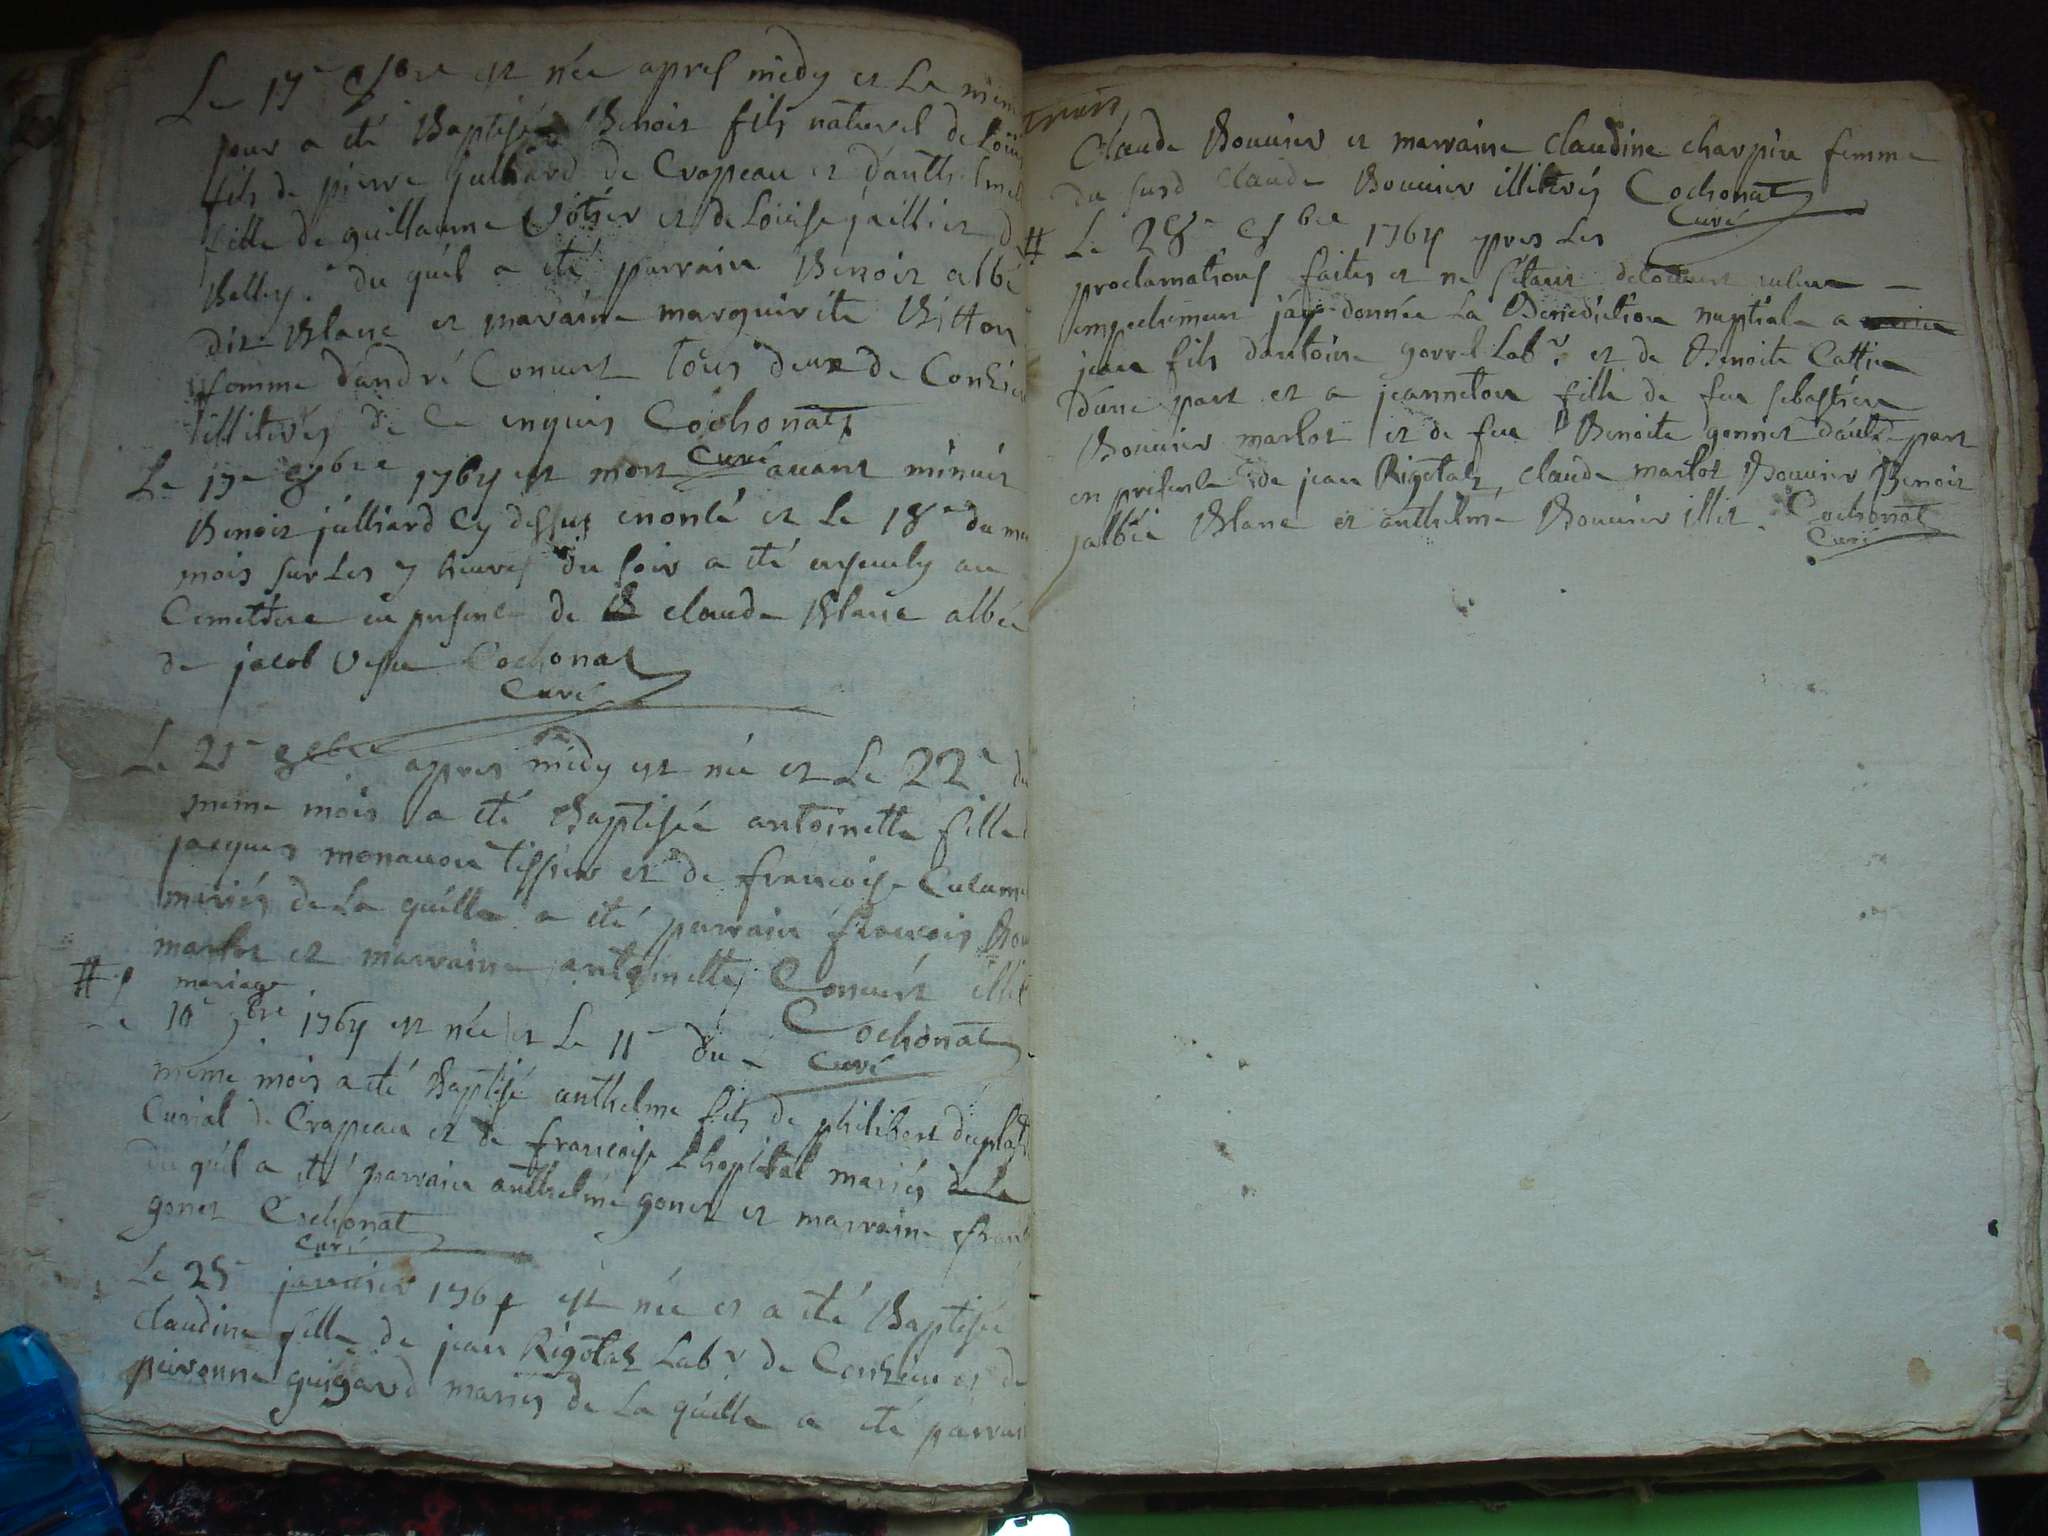 Le 17e 8bre est née apres midy et Le mem
jour a eté Baptisé Benoit fils naturel de Loüis
fils de pierre julliard de Crapeau et d'anthelme
fille de guillaume Votier et de Loüise jaillier d
Belley. du quél a eté parrain Benoit albé
dit Blanc et maraine marguirite Bitton
femme d'andré Convert tous deux de Conzieu
illiterés de ce enquis Cochonat
Curé
Le 17e 8bre 1764 est mort avant minuit
Benoit julliard Cy dessus enonté et Le 18e du me
mois sur Les 7 heures du soir a eté enseuely au
Cemettere en presence de claude Blanc albée
de jacob Cochonat
Curé
Le 21e 8bre apres midy est née et Le 22e du
meme mois a eté Baptisée antoinette fille
jacques monavon tissier et de francoise
mariés de La quélle a eté parrain francois Bou
marlot et marraine antoinette Convert illit
# mariage
Cochonat
Curé
Le 10e 9bre 1764 est née et Le 11e du
meme mois a eté Baptisé anthelme fils de philibert duplat
Curial de Crapeau et de francoise Lhopital mariés de La
du quél a eté parrain anthelme gonet et marraine fran
gonet Cochonat
Curé
Le 25e janvier 1764 est née et a eté Baptisée
claudine fille de jean Rigotat Labr de Conzieu et de
peironne guigard mariés de La quélle a eté parrain
Claude Bouvier et marraine claudine charpin femme
du susd claude Bouvier illiterés Cochonat
Curé
# Le 28e 8bre 1764 apres Les
proclamations faites et ne s'étant decouvert aucun
empechement j'ay donnée La Benediction nuptiale a
jean fils d'antoine gorrel Labr et de Benoite Cattin
d'une part et a jeanneton fille de feu sebastien
Bouvier marlot et de feue Benoite gonnet d'autre part
en presence de jean Rigotat, claude marlot Bouvier Benoit
jalbée Blanc et anthelme Bouvier illit. Cochonat
Curé